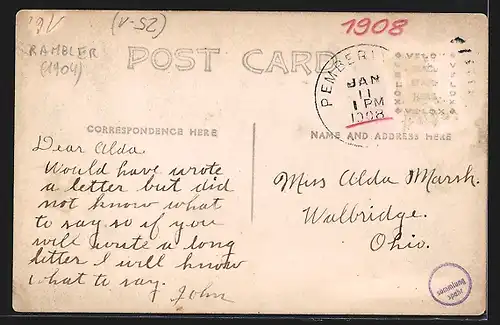 V6.
(V-52)
RAMBLER
(1904)
1908
POST CARD
PEMBER
JAN
11
1 PM
1908
VELOX
CORRESPONDENCE HERE
NAME AND ADDRESS HERE
Dear Alda.
Would have wrote
a letter but did
not know what
to say so if you
will wrote a long
letter I will know
what to say.
John
Miss Alda Marsh.
Walbridge.
Ohio.